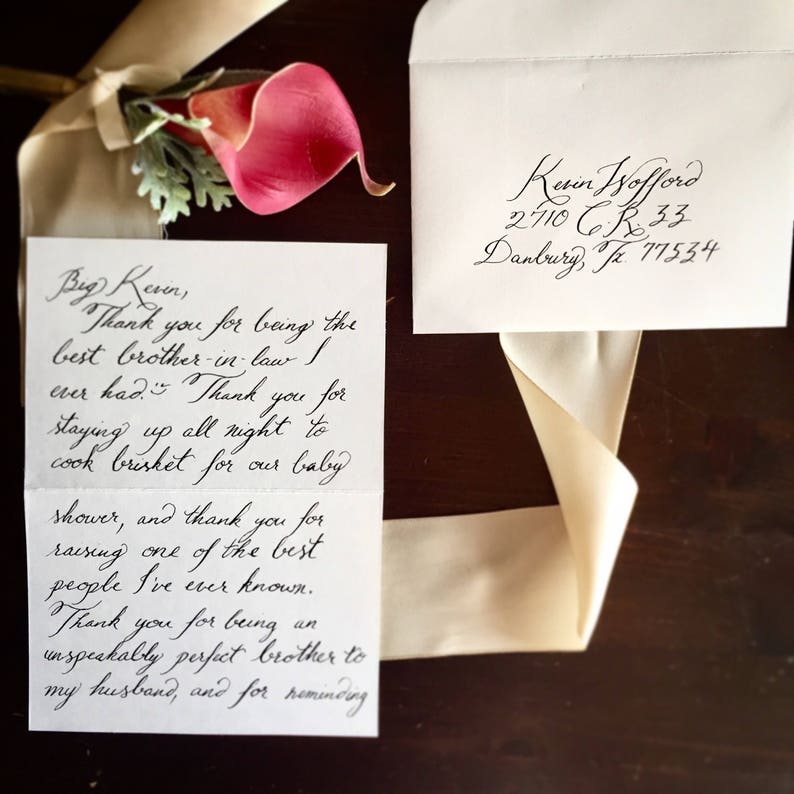 Kevin Wofford
2710 C.R. 33
Danbury, Tx. 77534
Big Kevin,
Thank you for being the
best brother-in-law I
ever had. Thank you for
staying up all night to
cook brisket for our baby
shower, and thank you for
raising one of the best
people I've ever known.
Thank you for being an
unspeakably perfect brother to
my husband, and for reminding